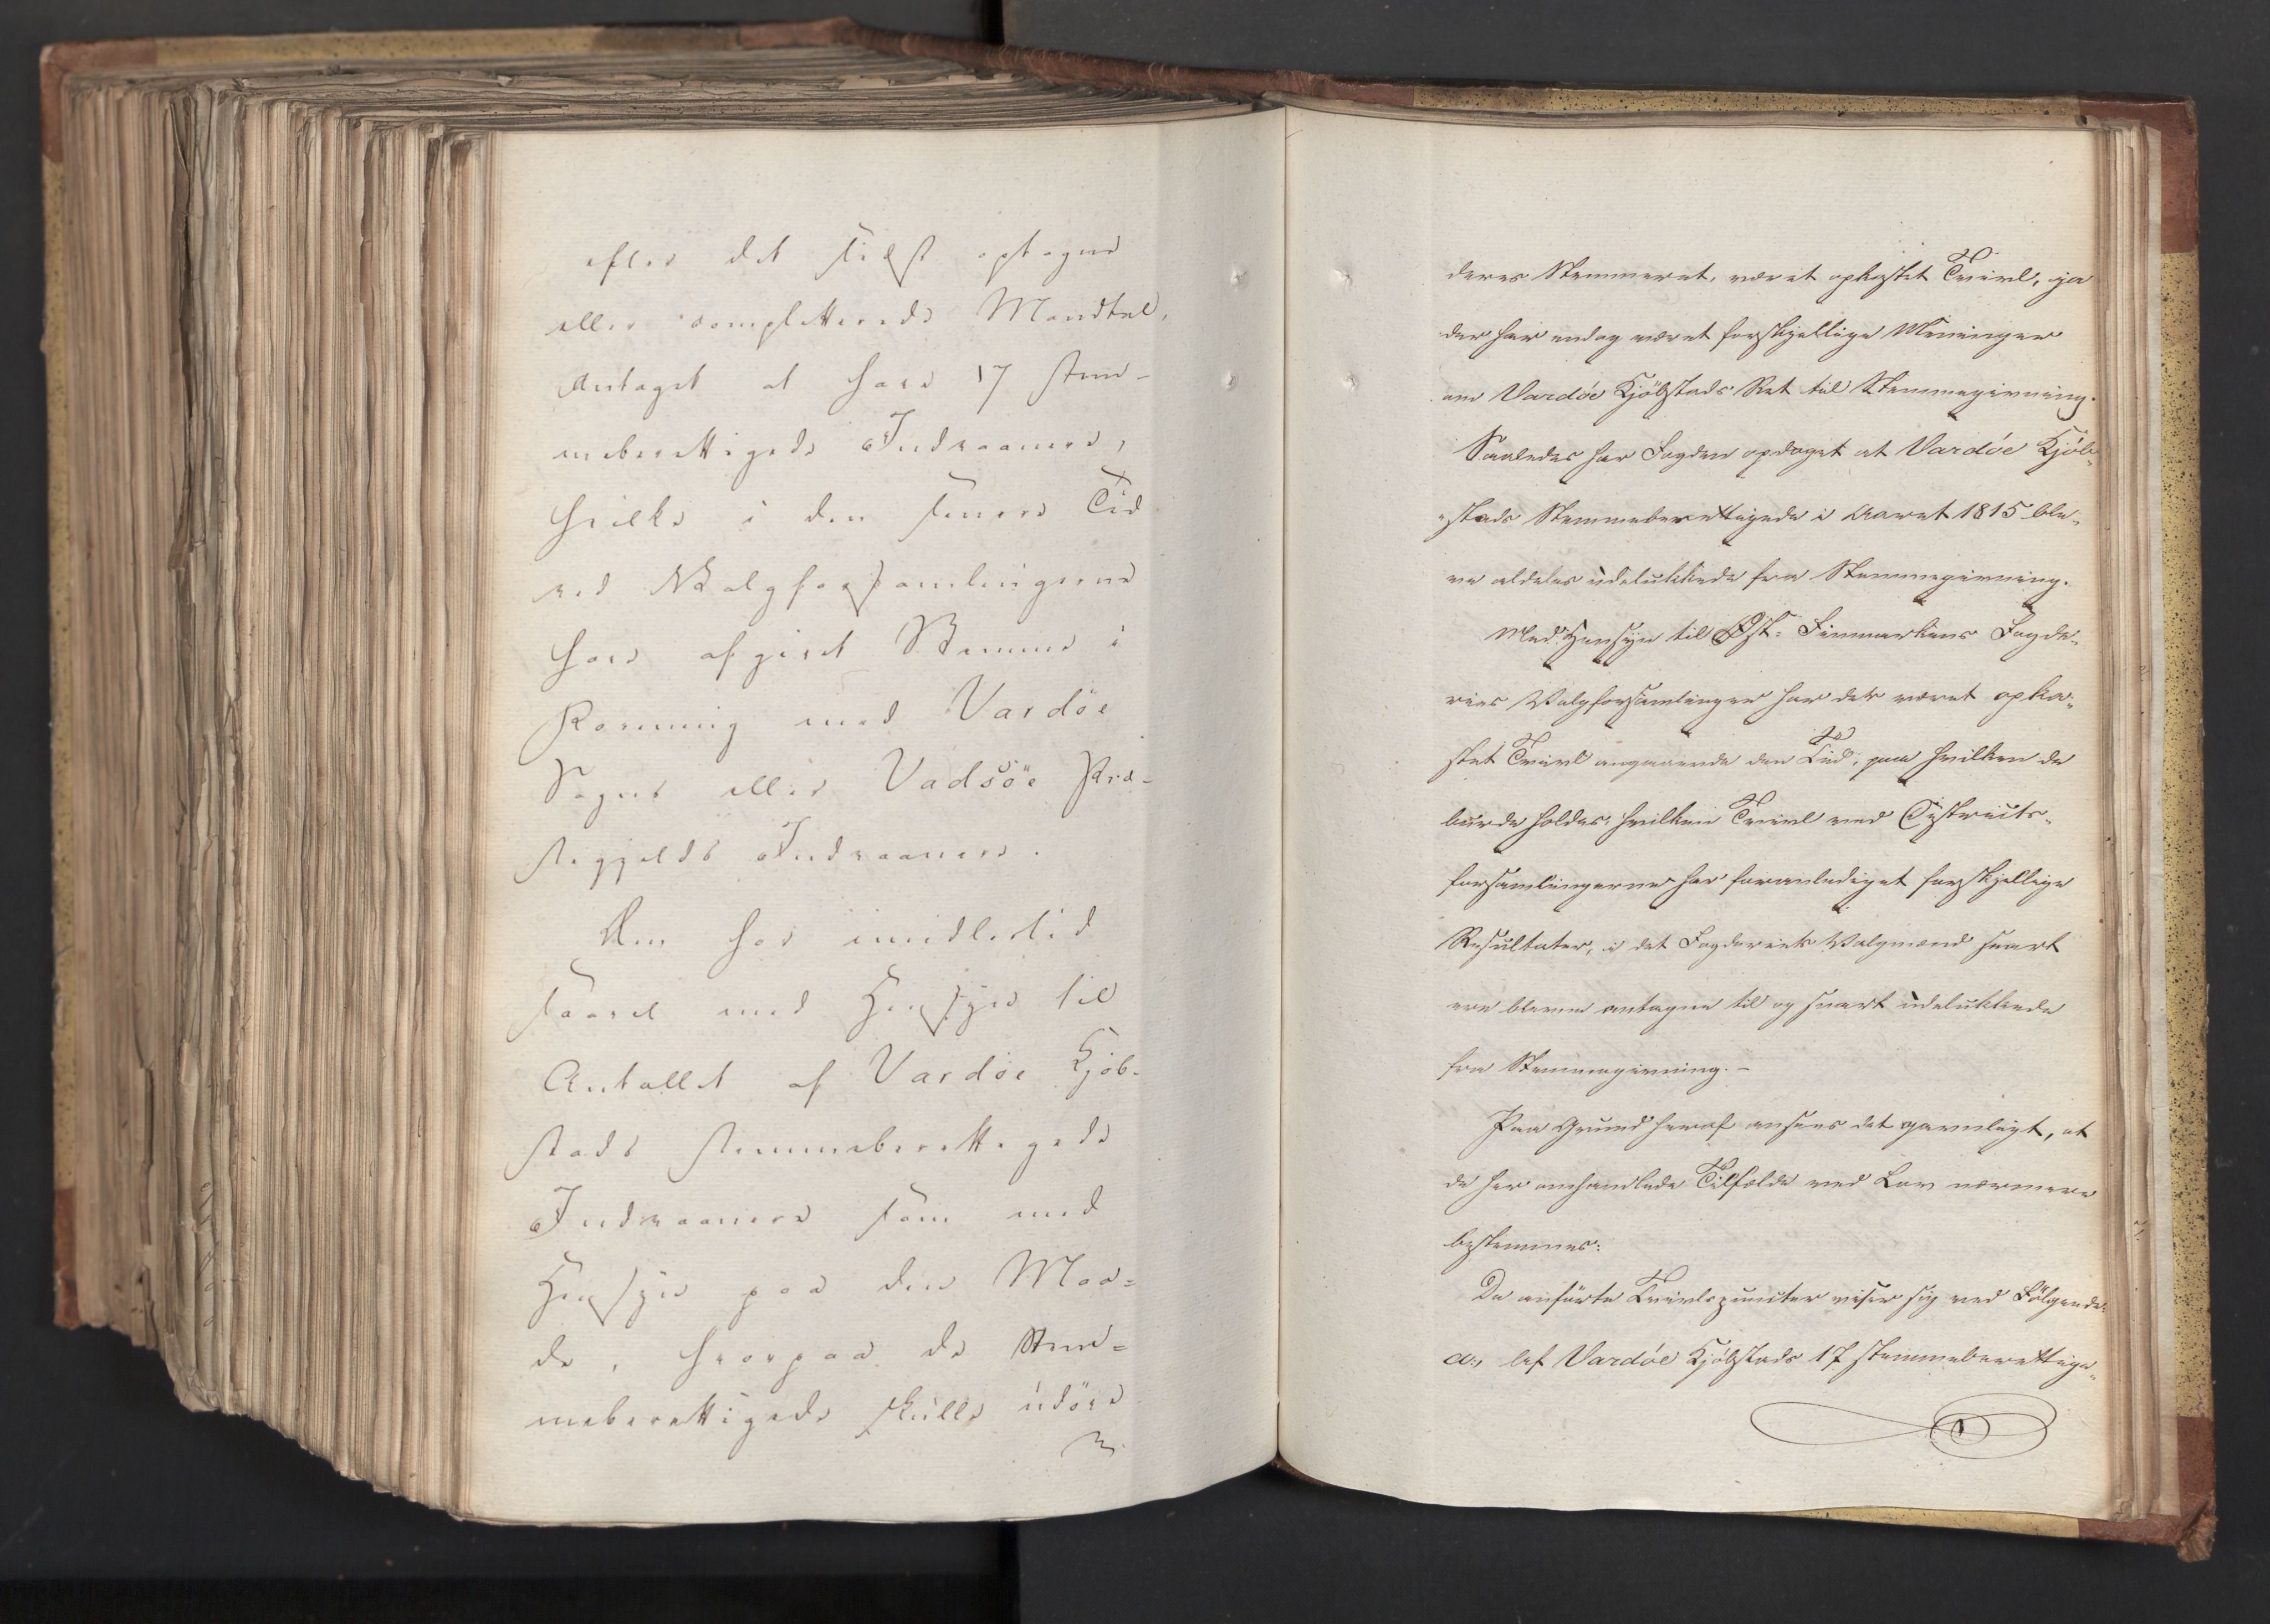 efter det sidst optagne
eller completterede Mandtal,
antaget at have 17 stem-
meberettigede Indvaanere,
hvilke i den senere Tid
ved Valgforsamlingerne
have afgivet Stemme i
Forening med Vardöe
Sogns eller Vadsöe Præ-
stegjelds Indvaanere.
Der har imidlertid
saavel med Hensyn til
Antallet af Vardöe Kjöb-
stads stemmeberettigede
Indvaanere som med
Hensyn paa den Maa-
de, hvorpaa de Stem-
meberettigede skulle udöve
deres Stemmeret, været opkastet Tvivl, ja
der har endog været forskjellige Meninger
om Vardöe Kjöbstads Ret til Stemmegivning.
Saaledes har Fogden opdaget at Vardöe Kjöb-
stads Stemmeberettigede i Aaret 1815 ble-
ve aldeles udelukkede fra Stemmegivning.
Med Hensyn til Øst-Finmarkens Fogde-
ries Valgforsamlinger har det været opka-
stet Tvivl angaaende den Tid, paa hvilken de
burde holdes, hvilken Tvivl ved Districts-
forsamlingerne har foranlediget forskjellige
Resultater, i det Fogderiets Valgmænd snart
ere blevne antagne til og snart udelukkede
fra Stemmegivning. -
Paa Grund heraf ansees det gavnligt, at
de her omhandlede Tilfælde ved Lov nærmere
bestemmes:
De anförte Tvivlspuncter viser sig ved Fölgende:
a., Af Vardöe Kjöbstads 17 stemmeberettige-